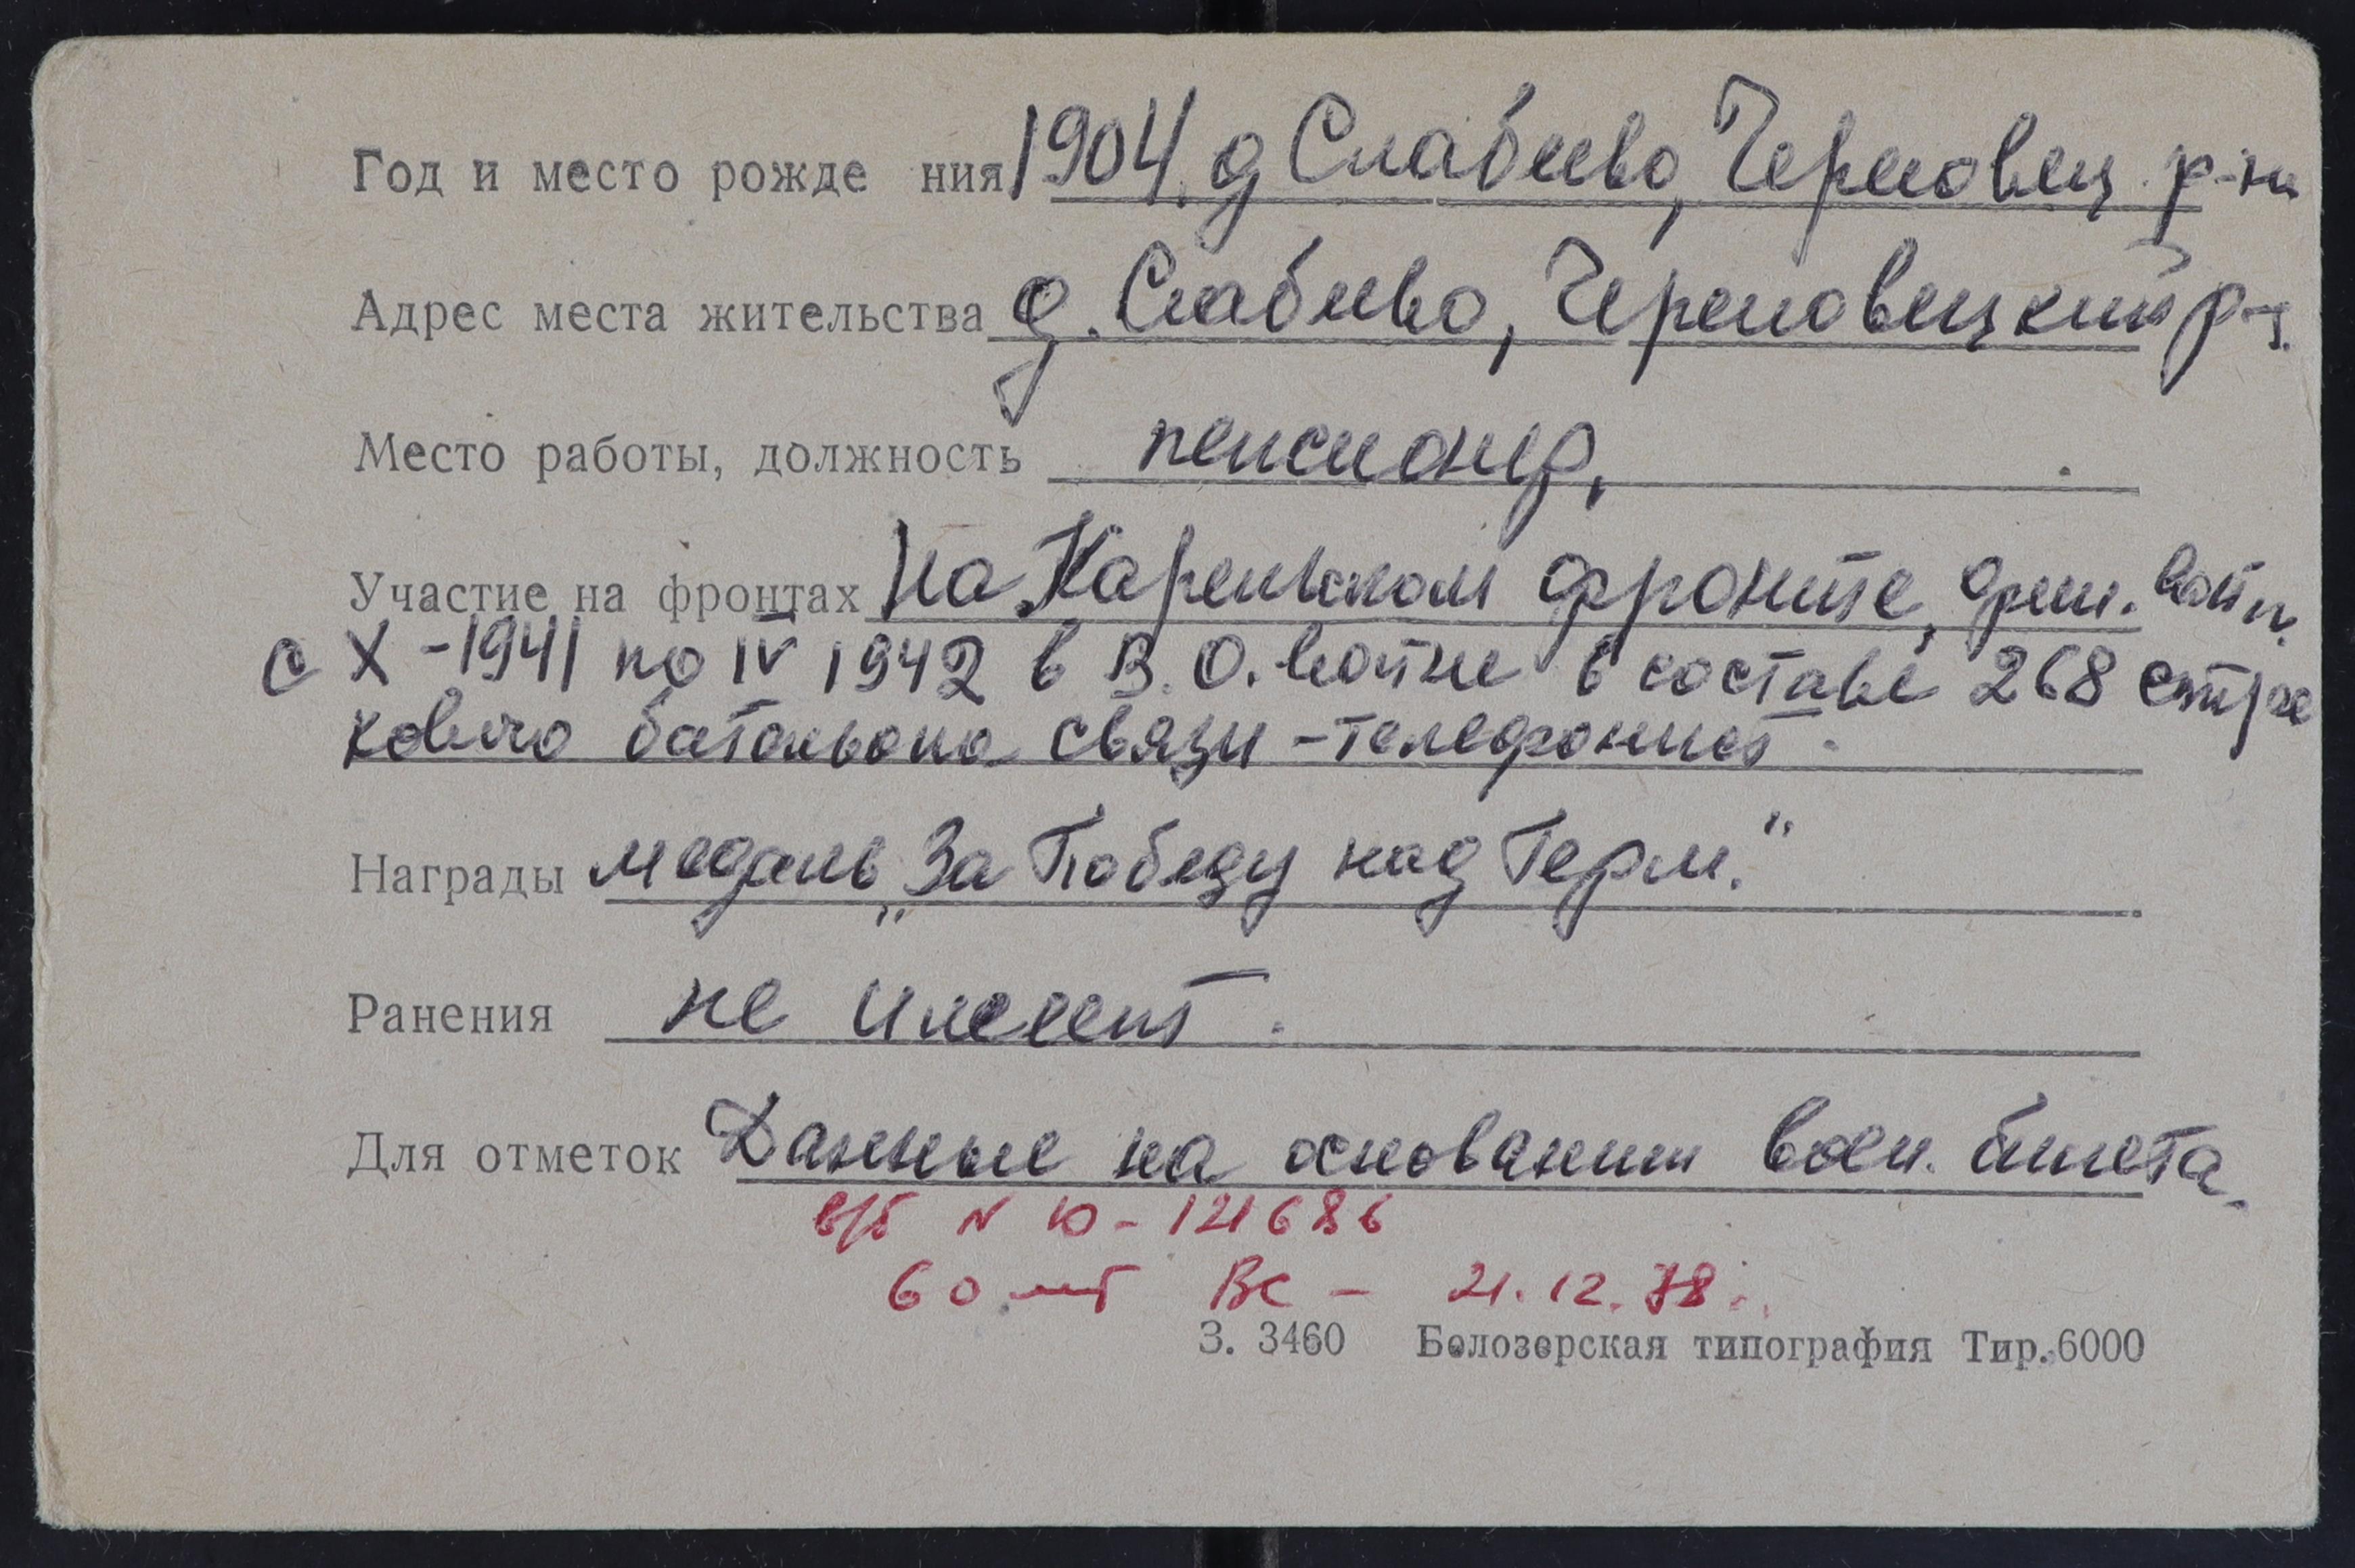 Год и место рожде ния 1904. д Слабеево, Череповец. р-н
Адрес места жительства д. Слабеево, Череповецкий р-н.
Место работы, должность пенсионер.
Участие на фронтах На Карельском фронте,
с X-1941 по IV 1942 в В.О. войне в составе 268 стрел
кового батальона связи - телефонист.
Награды медаль „За Победу над Герм."
Ранения не имеет.
Для отметок Данные на основании воен. билета.
в/б N Ю-121686
60 лет ВС - 21.12.78г.
З. 3460 Белозерская типография Тир. 6000